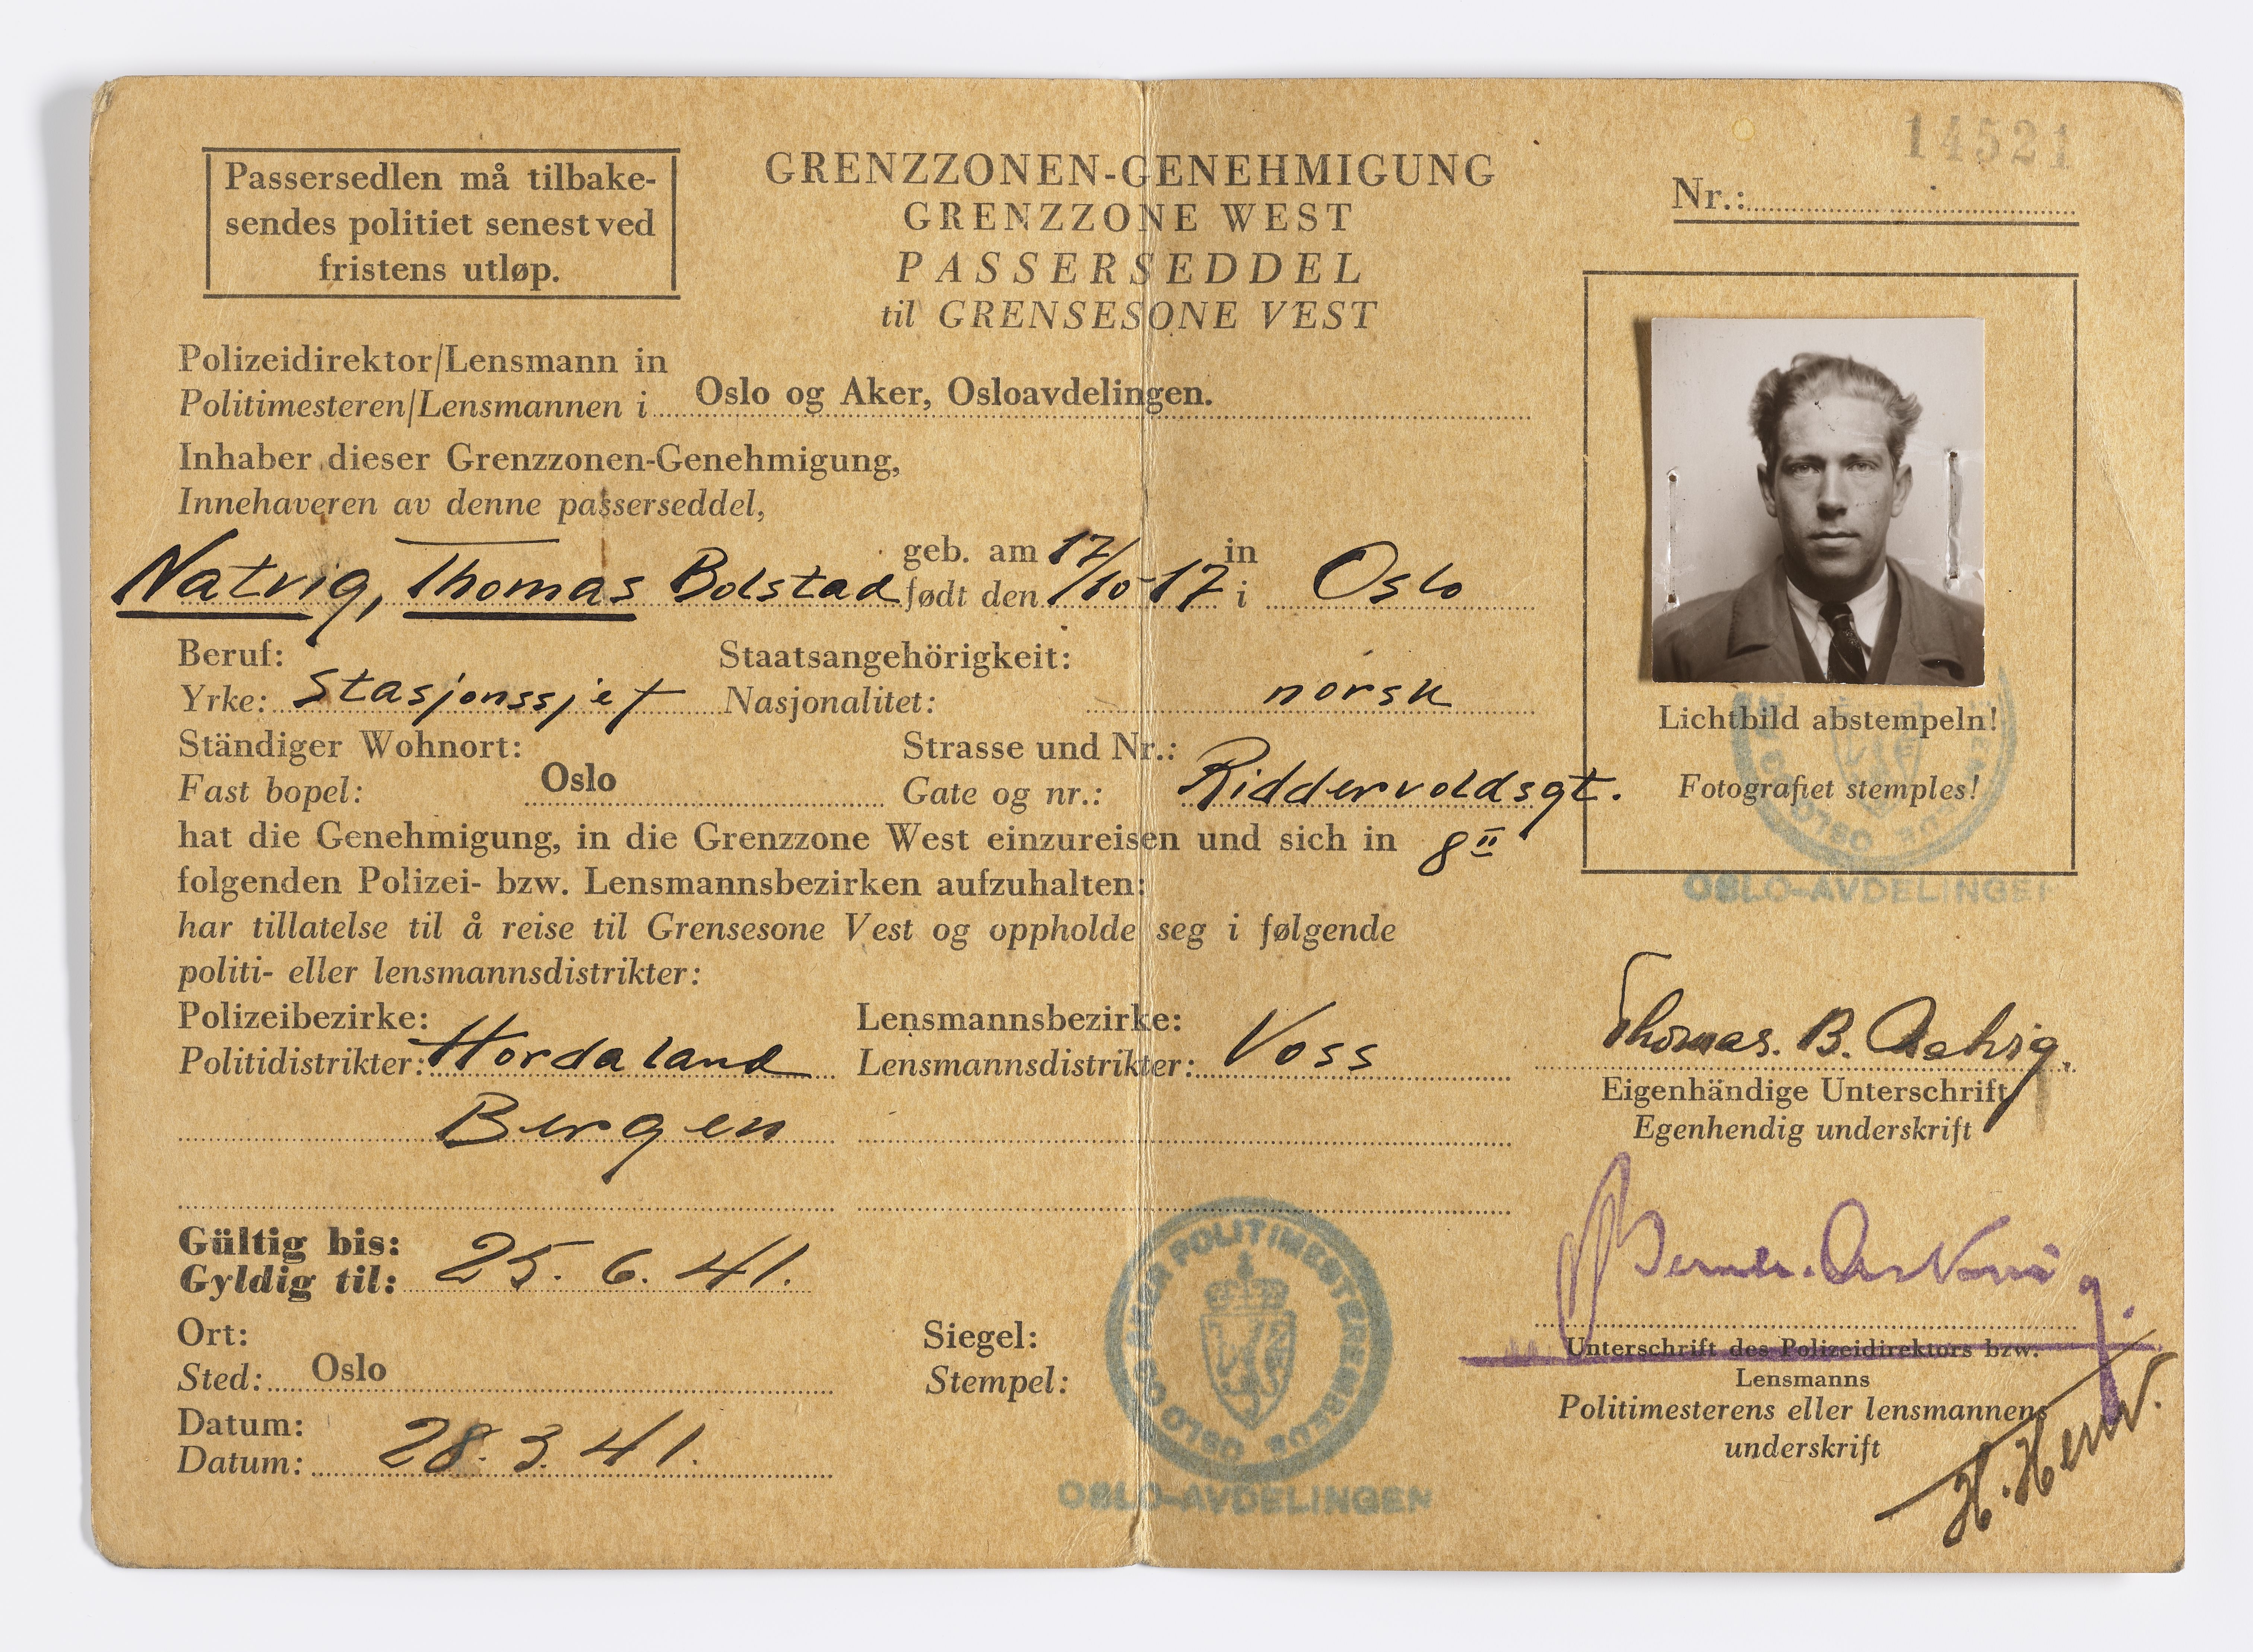 Passersedlen må tilbake-
sendes politiet senest ved
fristens utløp.
GRENZZONEN-GENEHMIGUNG
GRENZZONE WEST
PASSERSEDDEL
til GRENSESONE VEST
14521
Nr.:
Polizeidirektor/Lensmann in
Politimesteren/Lensmannen i Oslo og Aker, Osloavdelingen.
Inhaber dieser Grenzzonen-Genehmigung,
Innehaveren av denne passerseddel,
geb. am in
Natvig, Thomas Bolstad født den 17/10-17 i Oslo
Beruf: Staatsangehörigkeit:
Yrke: Stasjonssjef Nasjonalitet: norsk
Ständiger Wohnort: Strasse und Nr.:
Fast bopel: Oslo Gate og nr.: Riddervoldsgt.
hat die Genehmigung, in die Grenzzone West einzureisen und sich in 8 II
folgenden Polizei- bzw. Lensmannsbezirken aufzuhalten:
har tillatelse til å reise til Grensesone Vest og oppholde seg i følgende
politi- eller lensmannsdistrikter:
Polizeibezirke: Lensmannsbezirke:
Politidistrikter: Hordaland Lensmannsdistrikter: Voss
Bergen
Gültig bis:
Gyldig til: 25.6.41.
Ort:
Sted: Oslo
Datum:
Datum: 28.3.41.
Siegel:
Stempel:
OSLO OG AKER POLITIMESTEREMBEDE
OSLO-AVDELINGEN
Lichtbild abstempeln!
Fotografiet stemples!
OSLO-AVDELINGEN
Thomas. B. Natvig.
Eigenhändige Unterschrift
Egenhendig underskrift
Unterschrift des Polizeidirektors bzw.
Lensmanns
Politimesterens eller lensmannens
underskrift